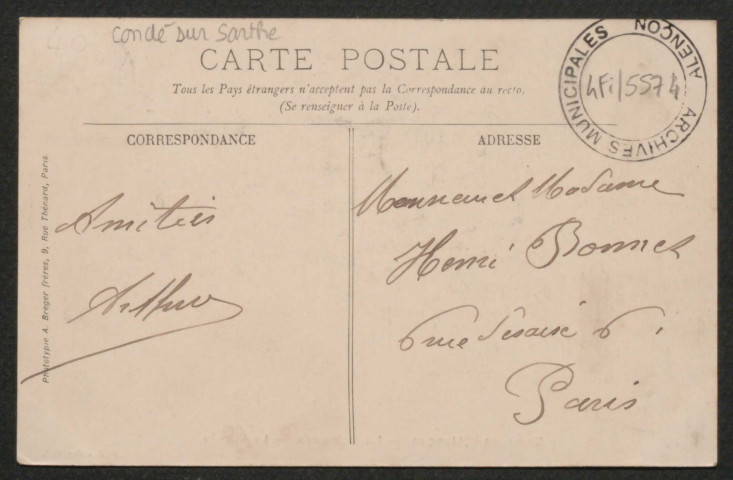 Condé sur Sarthe
CARTE POSTALE
Tous les Pays étrangers n'acceptent pas la Correspondance au recto.
(Se renseigner à la Poste).
ARCHIVES MUNICIPALES ALENÇON
4Fi/5574
CORRESPONDANCE
Amitiés
Arthur
Phototypie A. Breger frères, 9, Rue Thénard, Paris.
ADRESSE
Monsieur et Madame
Henri Bonnet
6 rue 6
Paris